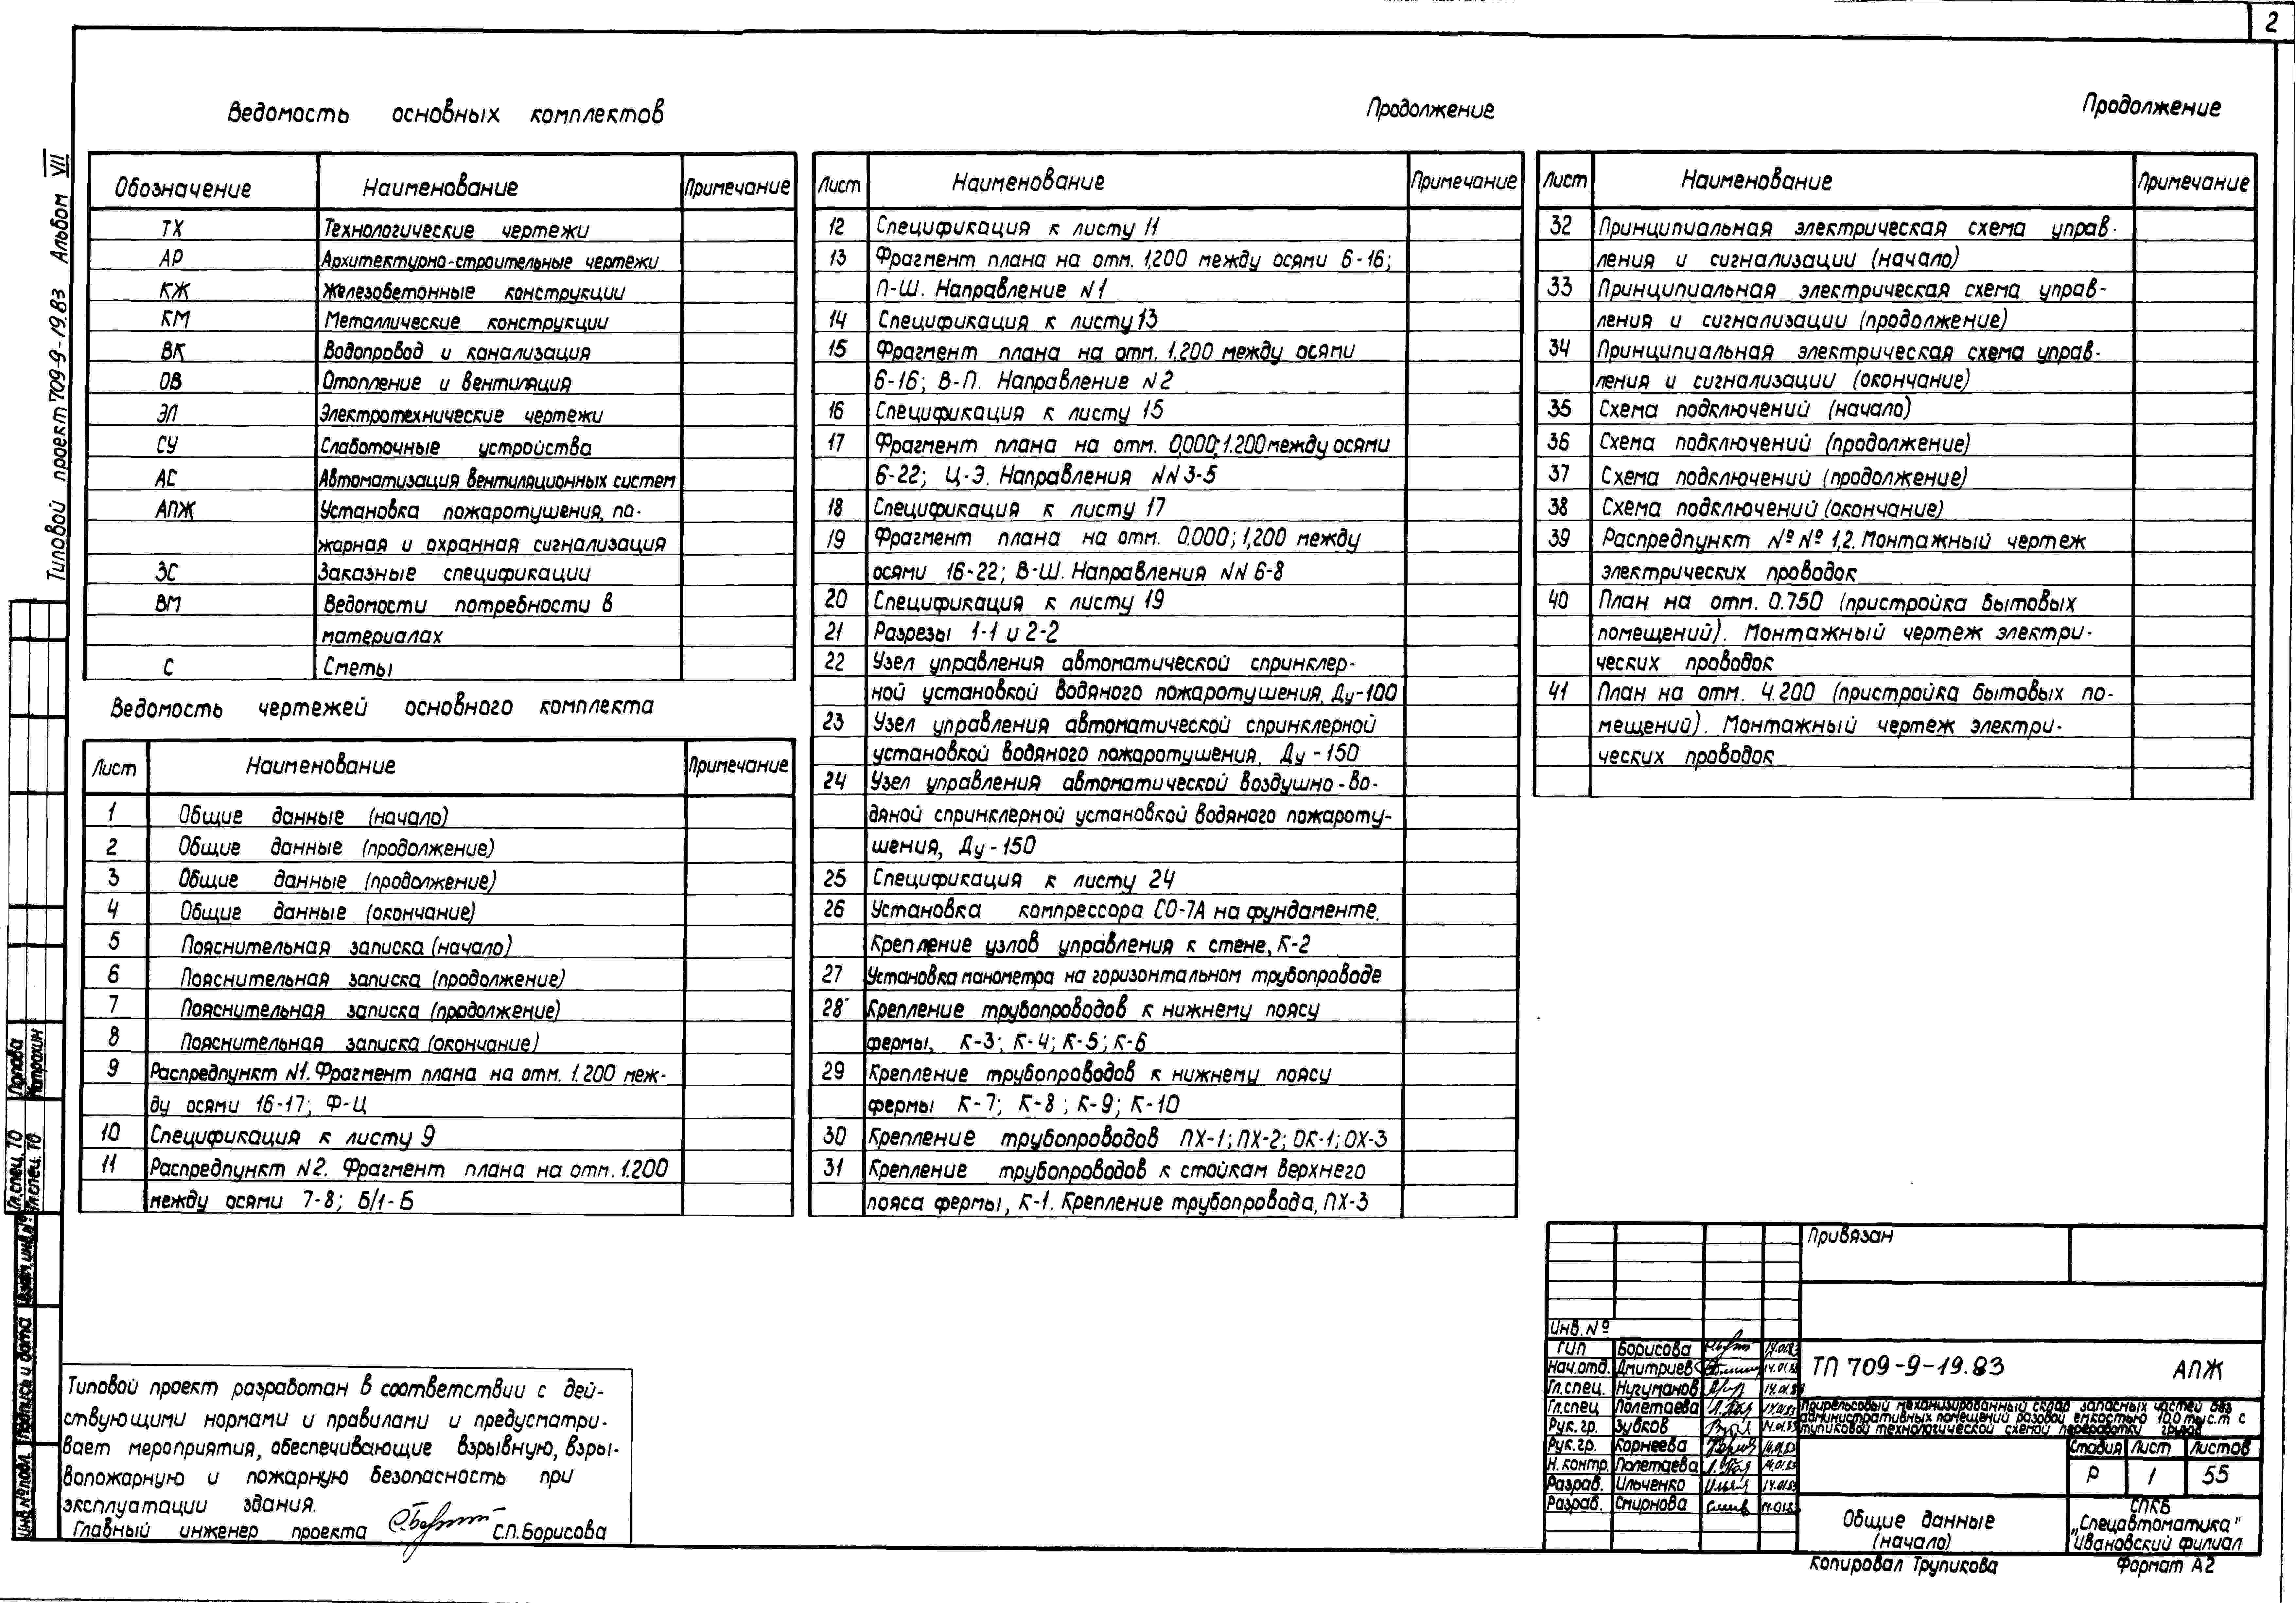 2
Типовой проект 709-9-19.83 Альбом VII
Ведомость основных комплектов
Обозначение Наименование Примечание
ТХ Технологические чертежи
АР Архитектурно-строительные чертежи
КЖ Железобетонные конструкции
КМ Металлические конструкции
ВК Водопровод и канализация
ОВ Отопление и вентиляция
ЭЛ Электротехнические чертежи
СУ Слаботочные устройства
АС Автоматизация вентиляционных систем
АПЖ Установка пожаротушения, по-
жарная и охранная сигнализация
ЗС Заказные спецификации
ВМ Ведомости потребности в
материалах
С Сметы
Ведомость чертежей основного комплекта
Лист Наименование Примечание
1 Общие данные (начало)
2 Общие данные (продолжение)
3 Общие данные (продолжение)
4 Общие данные (окончание)
5 Пояснительная записка (начало)
6 Пояснительная записка (продолжение)
7 Пояснительная записка (продолжение)
8 Пояснительная записка (окончание)
9 Распредпункт N1. Фрагмент плана на отм. 1.200 меж-
ду осями 16-17; Ф-Ц
10 Спецификация к листу 9
11 Распредпункт N2. Фрагмент плана на отм. 1.200
между осями 7-8; Б/1-Б
Продолжение
Лист Наименование Примечание
12 Спецификация к листу 11
13 Фрагмент плана на отм. 1,200 между осями 6-16;
П-Ш. Направление N1
14 Спецификация к листу 13
15 Фрагмент плана на отм. 1.200 между осями
6-16; В-П. Направление N2
16 Спецификация к листу 15
17 Фрагмент плана на отм. 0,000; 1.200 между осями
6-22; Ц-Э. Направления NN 3-5
18 Спецификация к листу 17
19 Фрагмент плана на отм. 0.000; 1,200 между
осями 16-22; В-Ш. Направления NN 6-8
20 Спецификация к листу 19
21 Разрезы 1-1 и 2-2
22 Узел управления автоматической спринклер-
ной установкой водяного пожаротушения, Ду-100
23 Узел управления автоматической спринклерной
установкой водяного пожаротушения, Ду-150
24 Узел управления автоматической воздушно-во-
дяной спринклерной установкой водяного пожароту-
шения, Ду-150
25 Спецификация к листу 24
26 Установка компрессора СО-7А на фундаменте.
Крепление узлов управления к стене, К-2
27 Установка манометра на горизонтальном трубопроводе
28 Крепление трубопроводов к нижнему поясу
фермы, К-3; К-4; К-5; К-6
29 Крепление трубопроводов к нижнему поясу
фермы К-7; К-8; К-9; К-10
30 Крепление трубопроводов ПХ-1; ПХ-2; ОК-1; ОХ-3
31 Крепление трубопроводов к стойкам верхнего
пояса фермы, К-1. Крепление трубопровода, ПХ-3
Продолжение
Лист Наименование Примечание
32 Принципиальная электрическая схема управ-
ления и сигнализации (начало)
33 Принципиальная электрическая схема управ-
ления и сигнализации (продолжение)
34 Принципиальная электрическая схема управ-
ления и сигнализации (окончание)
35 Схема подключений (начало)
36 Схема подключений (продолжение)
37 Схема подключений (продолжение)
38 Схема подключений (окончание)
39 Распредпункт №№ 1,2. Монтажный чертеж
электрических проводок
40 План на отм. 0.750 (пристройка бытовых
помещений). Монтажный чертеж электри-
ческих проводок
41 План на отм. 4.200 (пристройка бытовых по-
мещений). Монтажный чертеж электри-
ческих проводок
Гл.спец. ТО Попова
Гл.спец. ТО
Инв.№подл. Подпись и дата Взам.инв.№
Типовой проект разработан в соответствии с дей-
ствующими нормами и правилами и предусматри-
вает мероприятия, обеспечивающие взрывную, взры-
вопожарную и пожарную безопасность при
эксплуатации здания.
Главный инженер проекта С.П.Борисова
Привязан
Инв.№
ГИП Борисова 14.01.83
Нач.отд. Дмитриев 14.01.83
Гл.спец. Нугуманов 14.01.83
Гл.спец Полетаева 14.01.83
Рук.гр. Зубков 14.01.83
Рук.гр. Корнеева 14.01.83
Н.контр. Полетаева 14.01.83
Разраб. Ильченко 14.01.83
Разраб. Смирнова 14.01.83
ТП 709-9-19.83 АПЖ
Прирельсовый механизированный склад запасных частей без
административных помещений разовой емкостью 10,0 тыс.т с
тупиковой технологической схемой переработки грузов
Стадия Лист Листов
Р 1 55
Общие данные
(начало)
СПКБ
„Спецавтоматика"
Ивановский филиал
Копировал Трупикова Формат А2